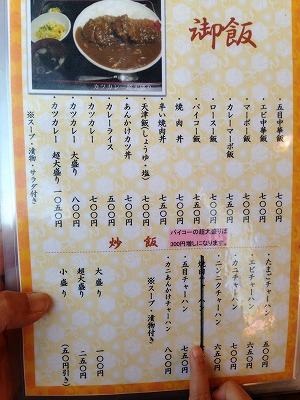 御飯
・五目中華飯 七〇〇円
・エビ中華飯 七五〇円
・マーボー飯 七〇〇円
・カレーマーボ飯 七五〇円
・ロース飯 七〇〇円
・パイコー飯 七五〇円
・焼肉丼 七〇〇円
・辛い焼肉丼 七五〇円
・天津飯(しょうゆ・塩) 七〇〇円
・あんかけカツ丼 七五〇円
・カレーライス 五〇〇円
・カツカレー 七〇〇円
・カツカレー 大盛り 八〇〇円
・カツカレー 超大盛り 一〇五〇円
※スープ・漬物・サラダ付き
パイコーの超大盛りは
300円増しになります。
炒飯
・たまごチャーハン 五〇〇円
・エビチャーハン 六五〇円
・カニチャーハン 七〇〇円
・ニンニクチャーハン 六五〇円
・五目チャーハン 七五〇円
・カニあんかけチャーハン 八〇〇円
※スープ・漬物付き
大盛り 一〇〇円
超大盛り 二五〇円
小盛り (五〇円引き)